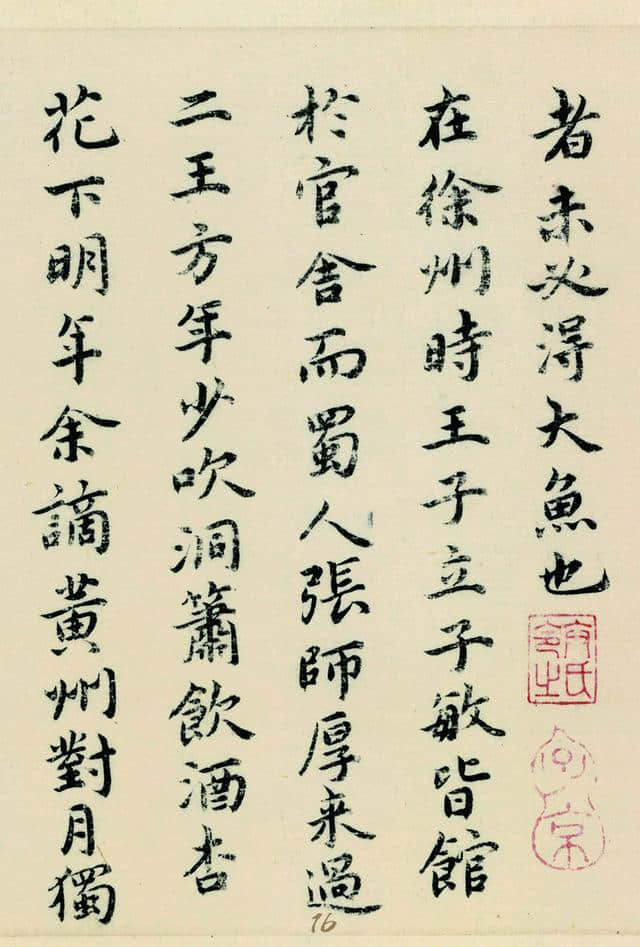 者未必得大魚也
在徐州時王子立子敏皆館
於官舍而蜀人張師厚来過
二王方年少吹洞簫飲酒杏
花下明年余謫黄州對月獨
16